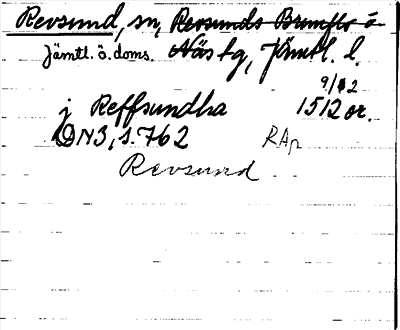 Revsund, sn, Revsunds Brunflo ö
Jämtl. ö. doms. Näs tg, Jämtl. l.
9/12
j Reffsundha 1512 or.
DN3, s. 762 RAp
Revsund